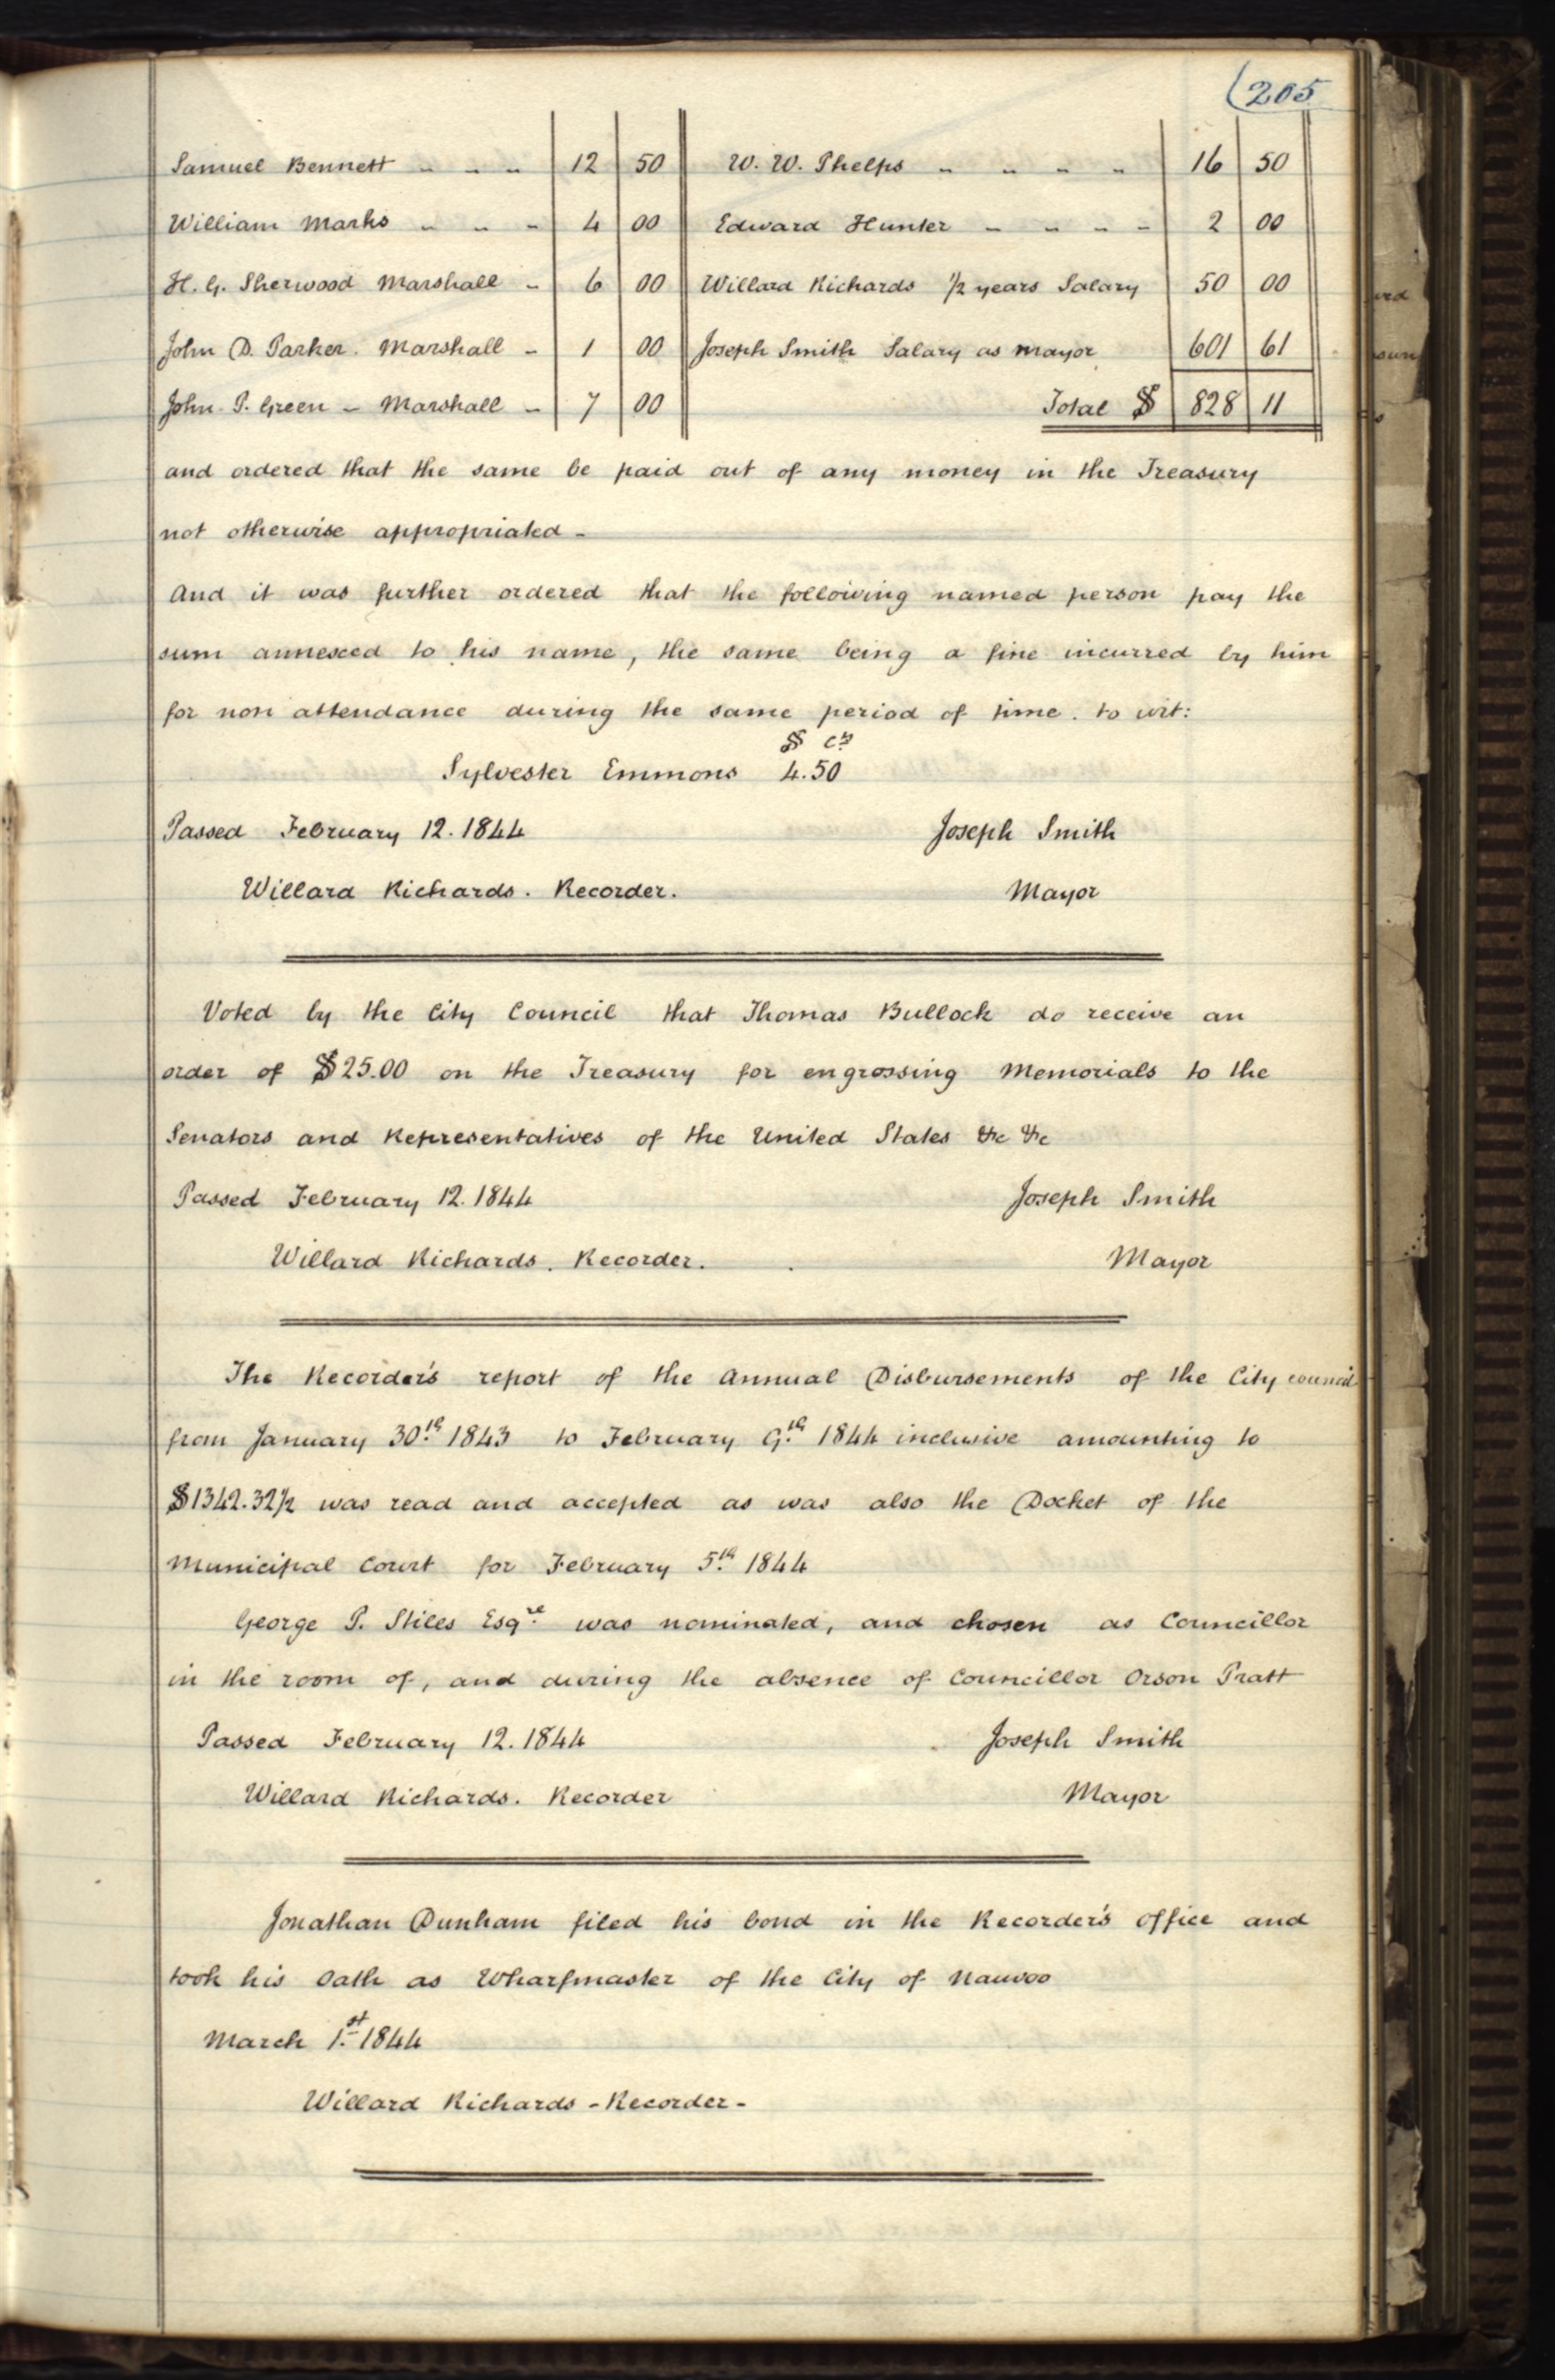 (205
Samuel Bennett " " " 12 50 W. W. Phelps " " " " 16 50
William Marks " " " 4 00 Edward Hunter " " " " 2 00
H. G. Sherwood Marshall " 6 00 Willard Richards 1/2 years Salary 50 00
John D. Parker. Marshall " 1 00 Joseph Smith Salary as mayor 601 61
John P. Green - Marshall " 7 00 Total $ 828 11
and ordered that the same be paid out of any money in the Treasury
not otherwise appropriated -
And it was further ordered that the following named person pay the
sum annexed to his name, the same being a fine incurred by him
for non attendance during the same period of time. to wit:
$ cts
Sylvester Emmons 4.50
Passed February 12. 1844 Joseph Smith
Willard Richards. Recorder. Mayor
Voted by the City Council that Thomas Bullock do receive an
order of $25.00 on the Treasury for engrossing Memorials to the
Senators and Representatives of the United States &c &c
Passed February 12. 1844 Joseph Smith
Willard Richards. Recorder. Mayor
The Recorder's report of the Annual Disbursements of the City council
from January 30th 1843 to February 9th 1844 inclusive amounting to
$1342.32½ was read and accepted as was also the Docket of the
Municipal Court for February 5th 1844
George P. Stiles Esqre was nominated, and chosen as Councillor
in the room of, and during the absence of Councillor Orson Pratt
Passed February 12. 1844 Joseph Smith
Willard Richards. Recorder Mayor
Jonathan Dunham filed his bond in the Recorder's office and
took his Oath as Wharfmaster of the City of Nauvoo
March 1st 1844
Willard Richards - Recorder -